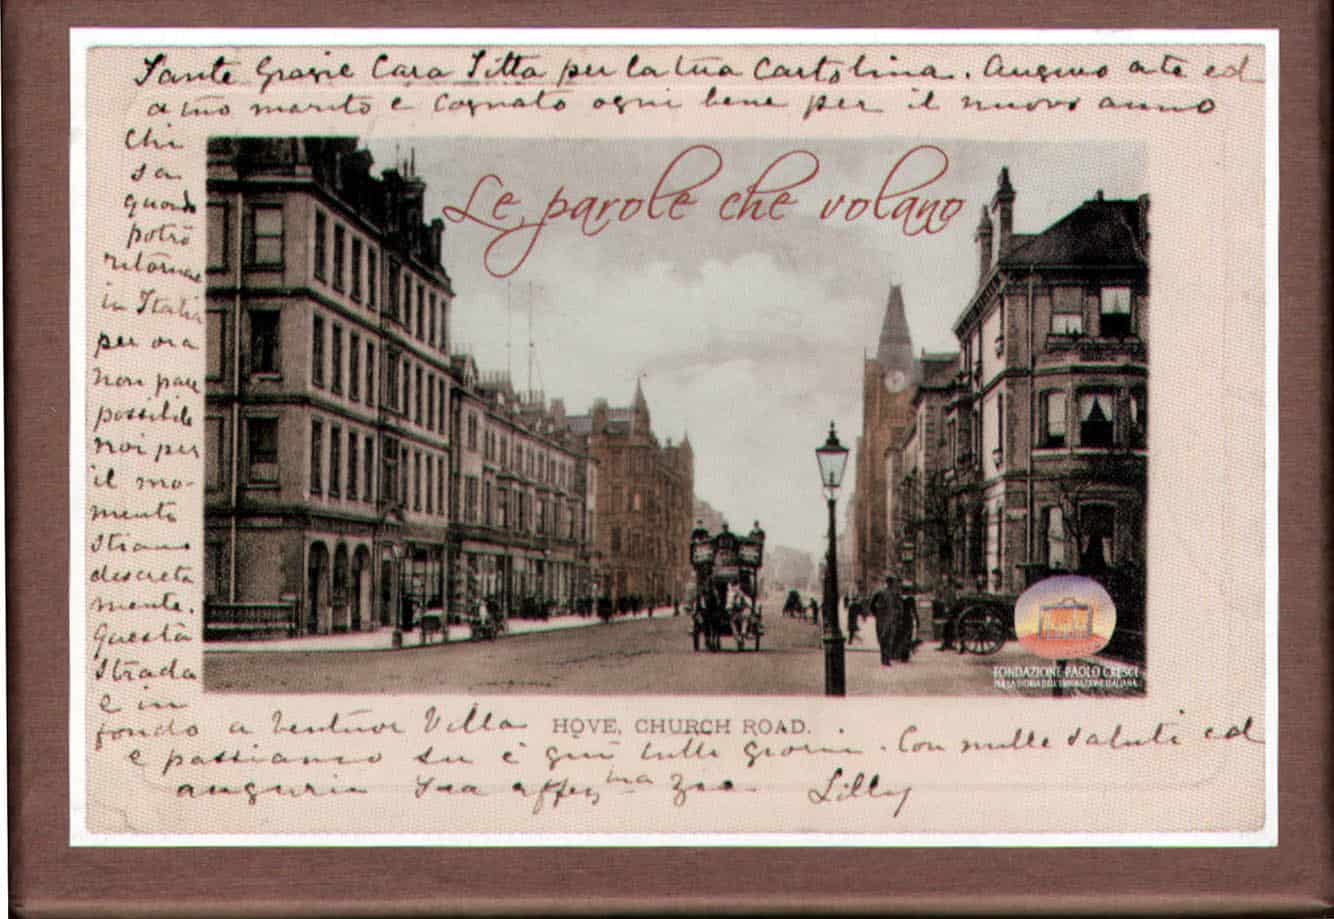 Tante Grazie Cara Titta per la tua Cartolina. Auguro a te ed
a tuo marito e Cognato ogni bene per il nuovo anno
Chi
sa
quando
potrò
ritornare
in Italia
per ora
non pare
possibile
noi per
il mo-
mento
stiamo
discreta
mente.
Questa
strada
è in
fondo a Ventnor Villa
e passiamo su e giù tutti giorni. Con mille saluti ed
augurii Tua affez ma Zia Lilly
Le parole che volano
FONDAZIONE PAOLO CRESCI
PER LA STORIA DELL'EMIGRAZIONE ITALIANA
HOVE, CHURCH ROAD.